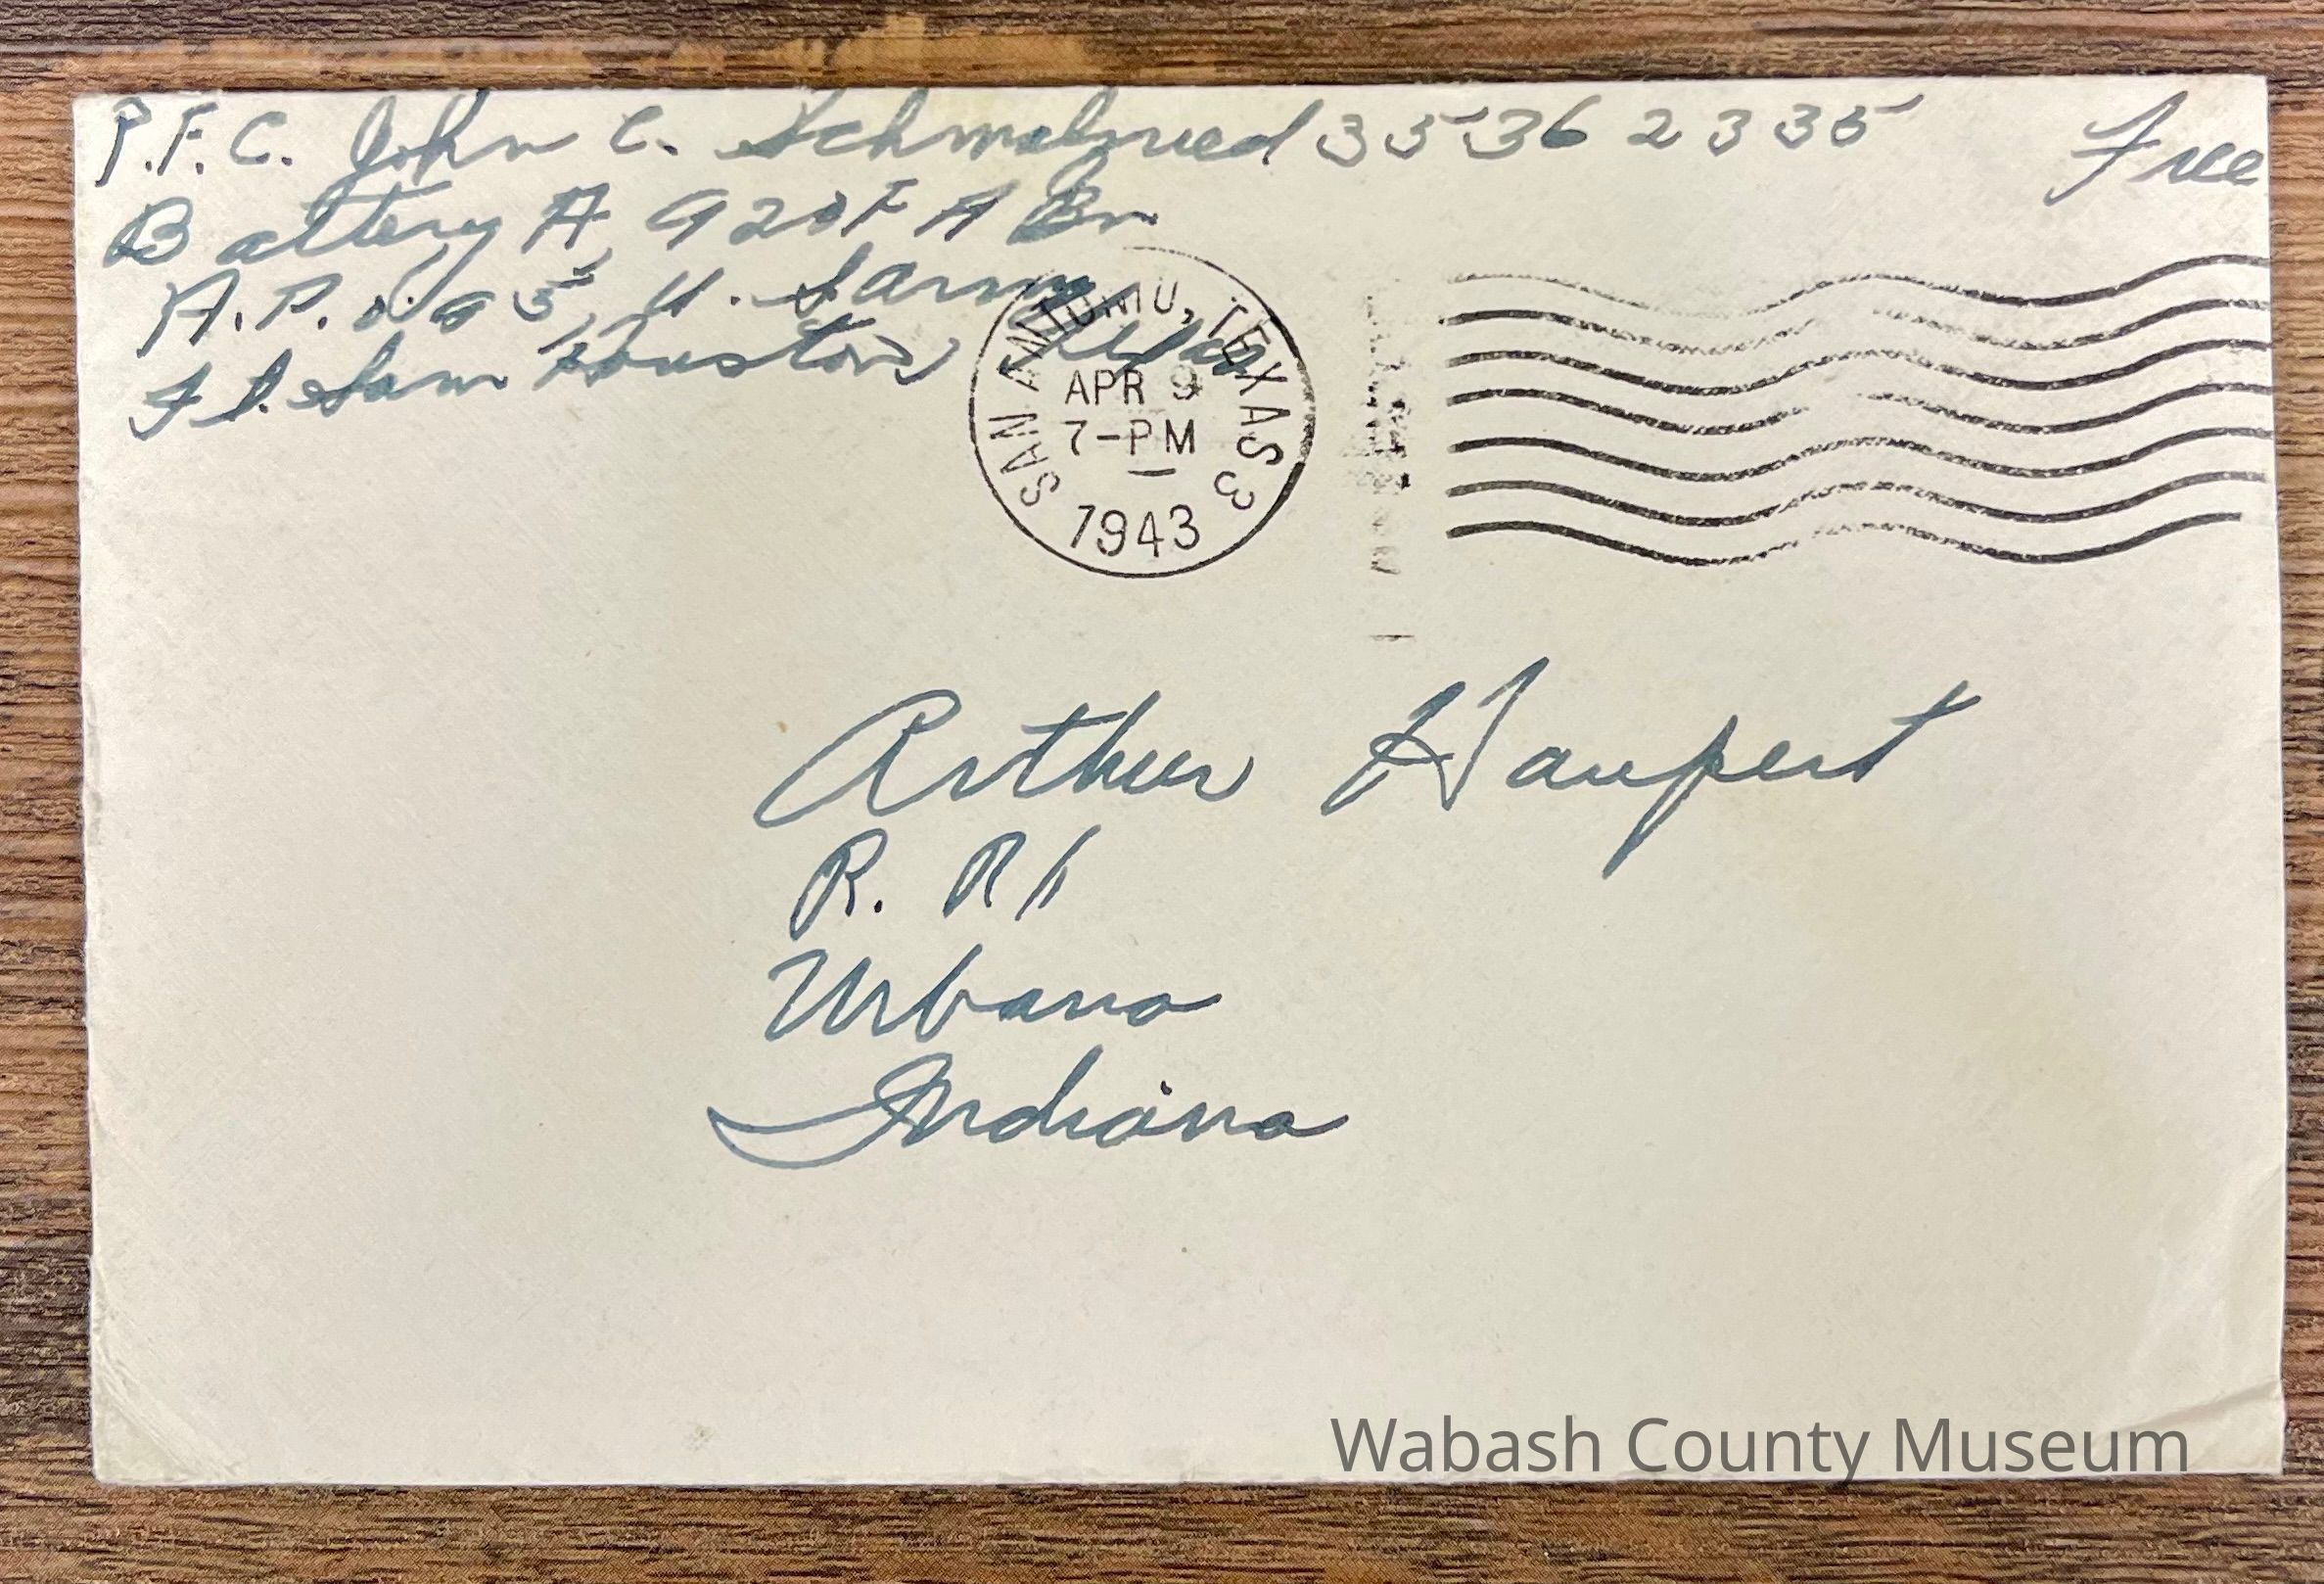 P.F.C. John C. Schmalzried 35362335
Free
Battery A, 920 F A Bn
A.P.O. 95, U. S Army
Ft. Sam Houston, Texas
SAN ANTONIO, TEXAS 3
APR 9
7-PM
1943
Arthur Haupert
R. R 1
Urbana
Indiana
Wabash County Museum